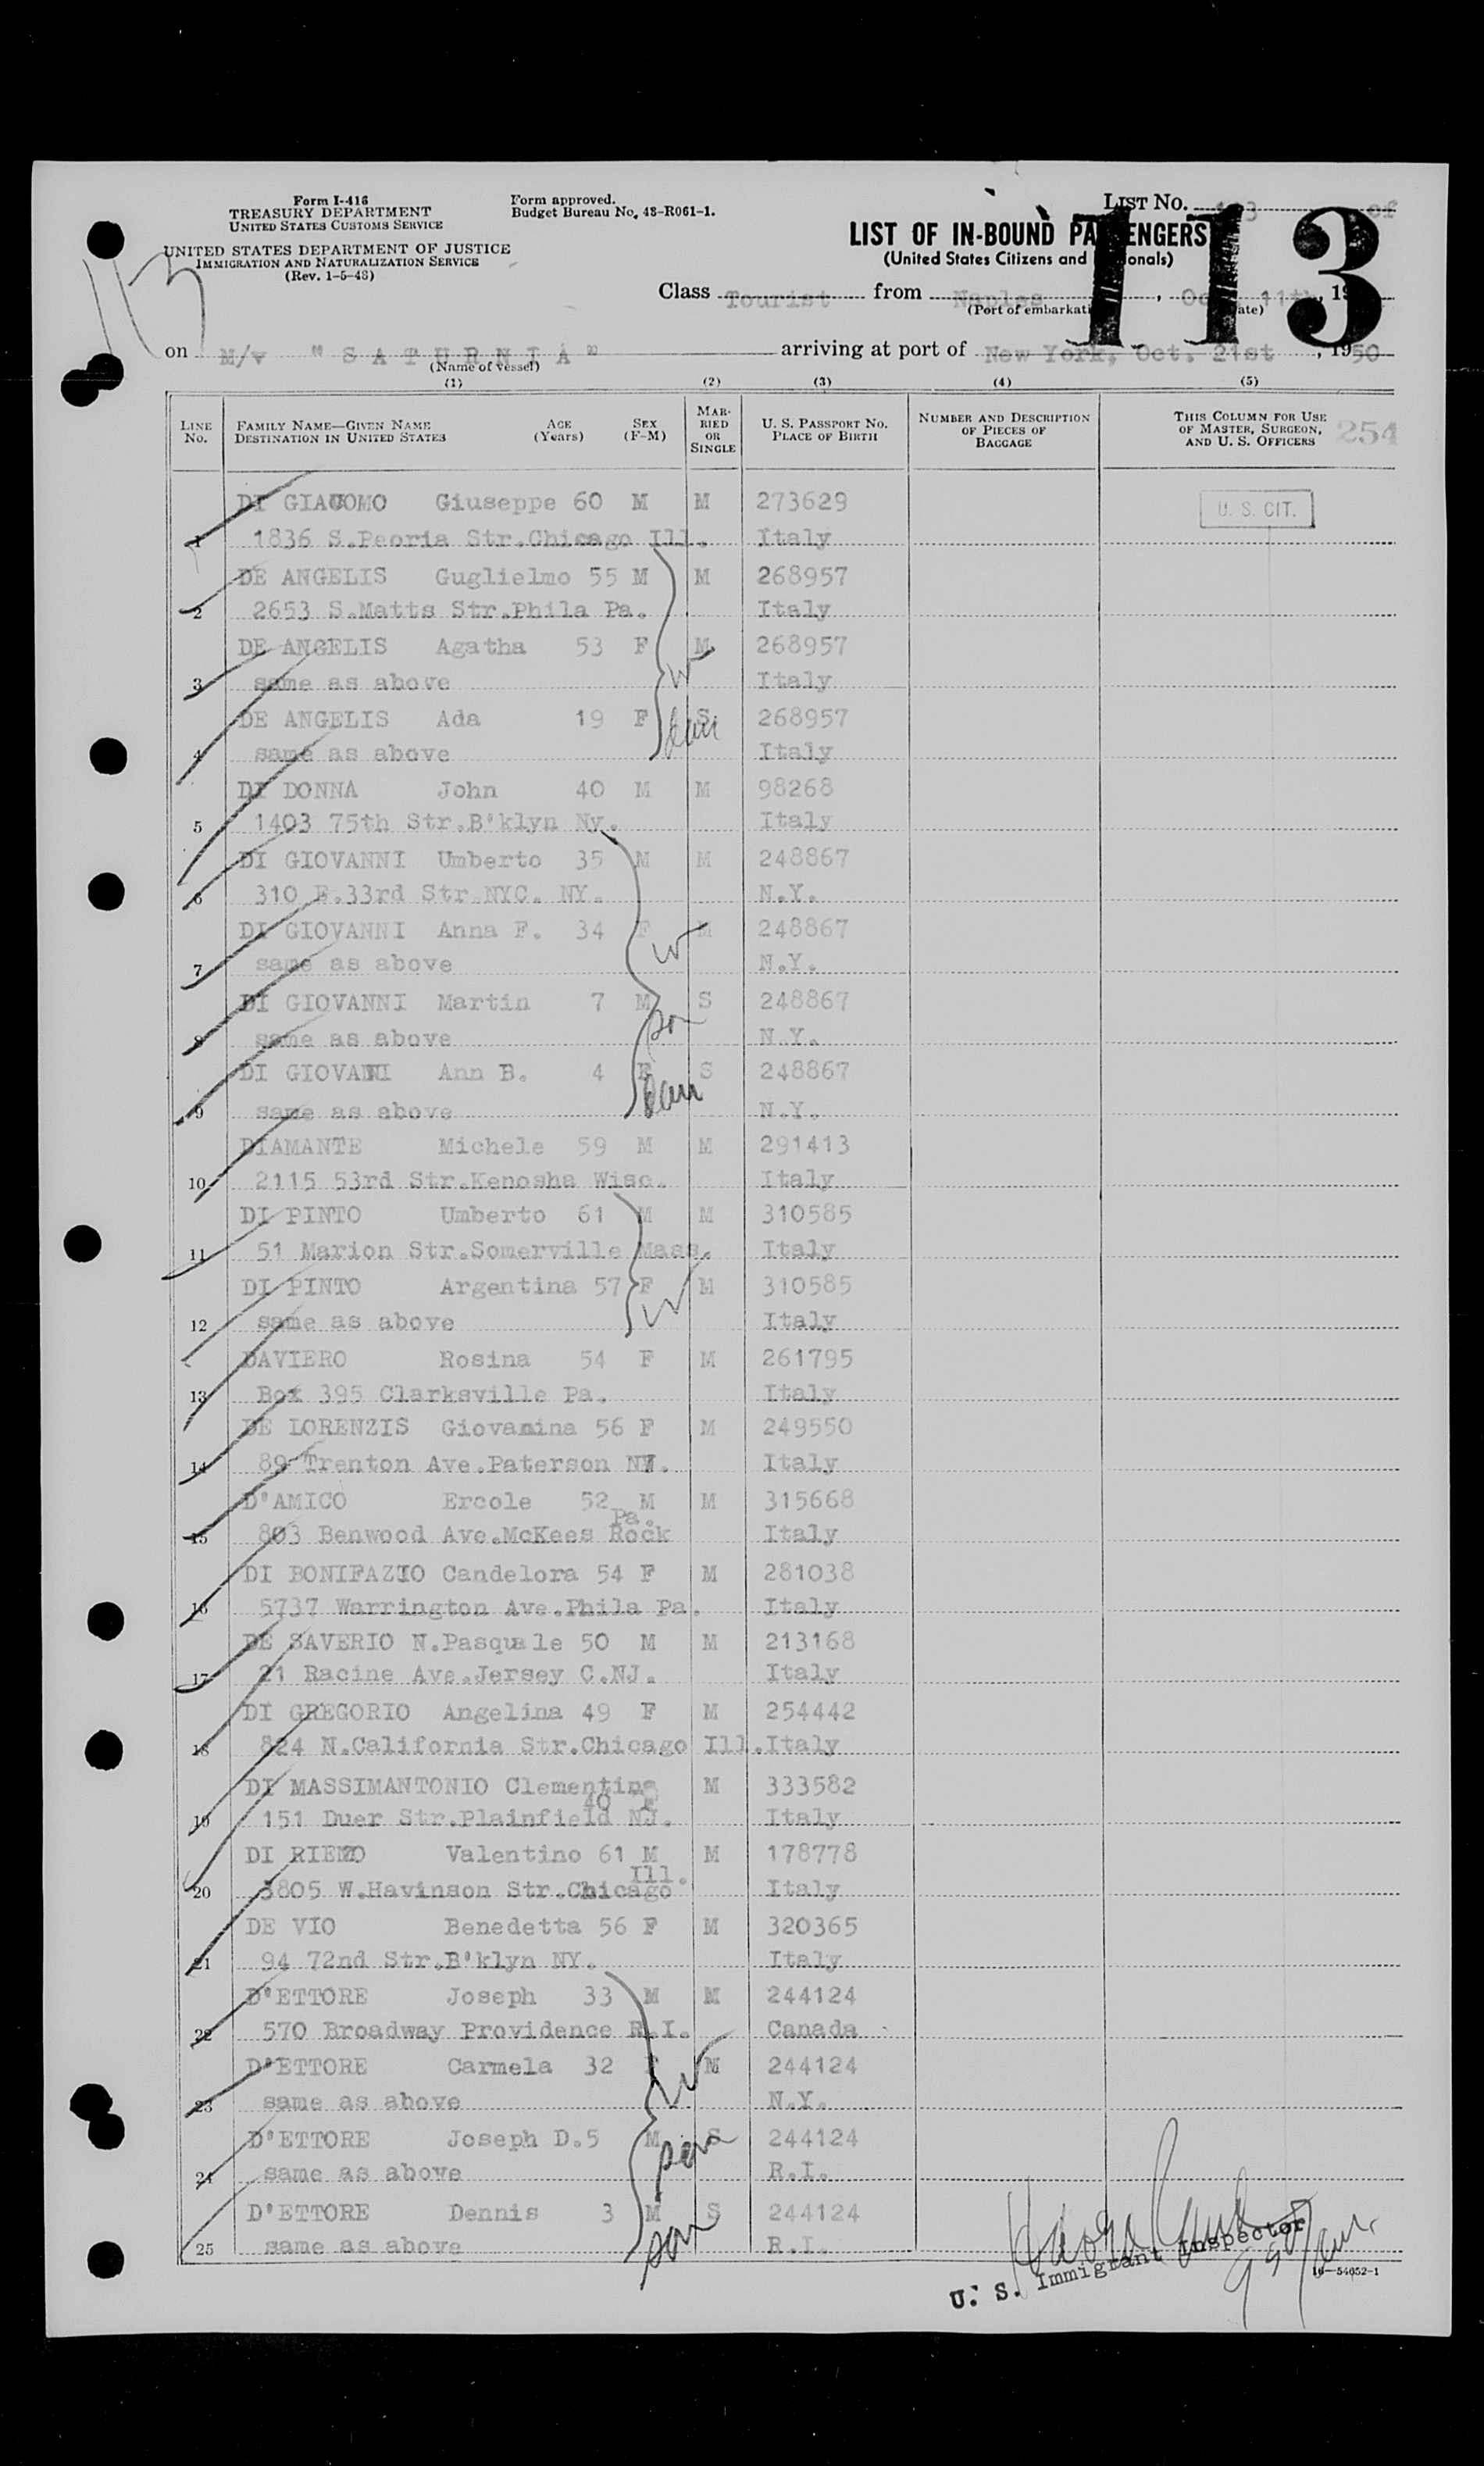 Form I-416
TREASURY DEPARTMENT
UNITED STATES CUSTOMS SERVICE
UNITED STATES DEPARTMENT OF JUSTICE
IMMIGRATION AND NATURALIZATION SERVICE
(Rev. 1-5-48)
Form approved.
Budget Bureau No. 48-R061-1.
LIST No. of
113
113
LIST OF IN-BOUND PASSENGERS
(United States Citizens and Nationals)
Class Tourist from Naples, Oct 11th, 19
(Port of embarkation) (Date)
on M/v "SATURNIA" arriving at port of New York, Oct. 21st, 1950
(Name of vessel)
(1) (2) (3) (4) (5)
LINE No. FAMILY NAME—GIVEN NAME DESTINATION IN UNITED STATES AGE (Years) SEX (F-M) MARRIED OR SINGLE U. S. PASSPORT No. PLACE OF BIRTH NUMBER AND DESCRIPTION OF PIECES OF BAGGAGE THIS COLUMN FOR USE OF MASTER, SURGEON, AND U. S. OFFICERS 254
DI GIACOMO Giuseppe 60 M M 273629 U. S. CIT.
1 1836 S.Peoria Str.Chicago Ill. Italy
DE ANGELIS Guglielmo 55 M M 268957
2 2653 S.Matts Str.Phila Pa. Italy
DE ANGELIS Agatha 53 F M 268957
3 same as above w Italy
DE ANGELIS Ada 19 F S 268957
4 same as above dau Italy
DI DONNA John 40 M M 98268
5 1403 75th Str.B'klyn Ny. Italy
DI GIOVANNI Umberto 35 M M 248867
6 310 E.33rd Str.NYC. NY. N.Y.
DI GIOVANNI Anna F. 34 F M 248867
7 same as above w N.Y.
DI GIOVANNI Martin 7 M S 248867
8 same as above son N.Y.
DI GIOVANNI Ann B. 4 F S 248867
9 same as above dau N.Y.
DIAMANTE Michele 59 M M 291413
10 2115 53rd Str.Kenosha Wisc. Italy
DI PINTO Umberto 61 M M 310585
11 51 Marion Str.Somerville Mass. Italy
DI PINTO Argentina 57 F M 310585
12 same as above w Italy
DAVIERO Rosina 54 F M 261795
13 Box 395 Clarksville Pa. Italy
DE LORENZIS Giovanina 56 F M 249550
14 89 Trenton Ave.Paterson Italy
D'AMICO Ercole 52 M M 315668
15 803 Benwood Ave.McKees Rock Pa. Italy
DI BONIFAZIO Candelora 54 F M 281038
16 5737 Warrington Ave.Phila Pa. Italy
DE SAVERIO N.Pasquale 50 M M 213168
17 21 Racine Ave.Jersey C.NJ. Italy
DI GREGORIO Angelina 49 F M 254442
18 824 N.California Str.Chicago Ill. Italy
DI MASSIMANTONIO Clementina 40 F M 333582
19 151 Duer Str.Plainfield NJ. Italy
DI RIENZO Valentino 61 M M 178778
20 3805 W.Havinson Str.Chicago Ill. Italy
DE VIO Benedetta 56 F M 320365
21 94 72nd Str.B'klyn NY. Italy
D'ETTORE Joseph 33 M M 244124
22 570 Broadway Providence R.I. Canada
D'ETTORE Carmela 32 M 244124
23 same as above w N.Y.
D'ETTORE Joseph D.5 M S 244124
24 same as above son R.I.
D'ETTORE Dennis 3 M S 244124
25 same as above son R.I.
U. S. Immigrant Inspector
16—54052-1